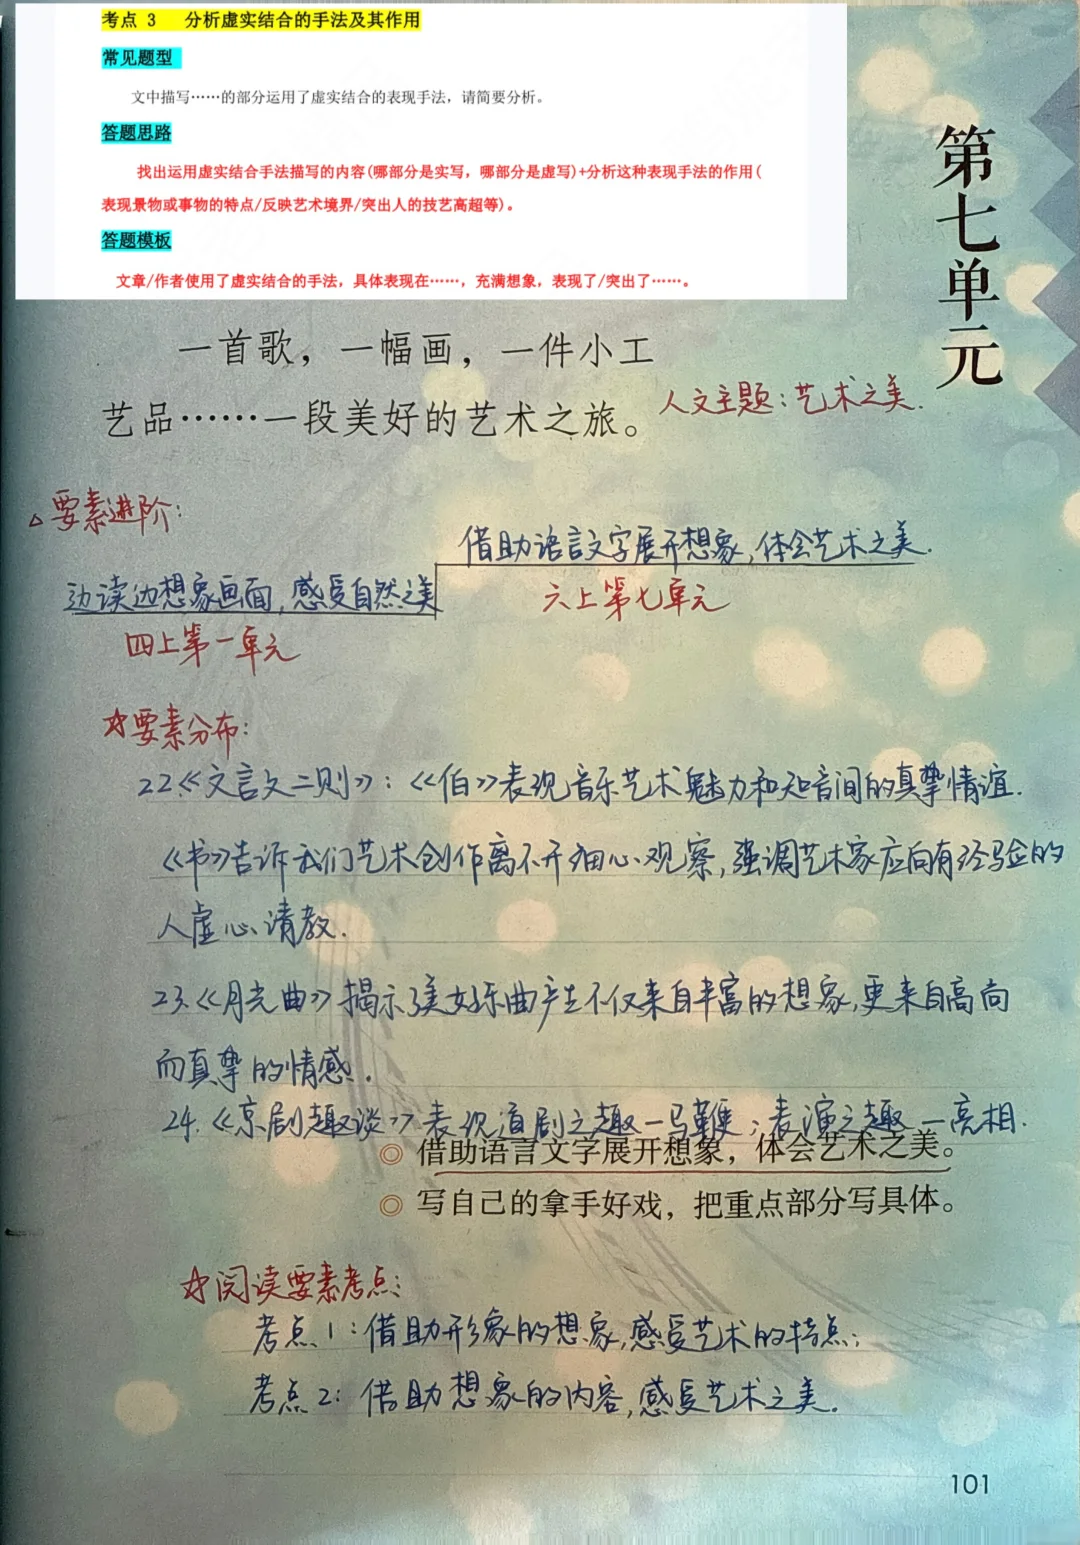 考点 3 分析虚实结合的手法及其作用
常见题型
文中描写……的部分运用了虚实结合的表现手法，请简要分析。
答题思路
找出运用虚实结合手法描写的内容(哪部分是实写，哪部分是虚写)+分析这种表现手法的作用(
表现景物或事物的特点/反映艺术境界/突出人的技艺高超等)。
答题模板
文章/作者使用了虚实结合的手法，具体表现在……，充满想象，表现了/突出了……。
第七单元
一首歌，一幅画，一件小工
艺品……一段美好的艺术之旅。
人文主题：艺术之美.
△要素进阶：
借助语言文字展开想象，体会艺术之美.
六上第七单元
边读边想象画面，感受自然之美
四上第一单元
☆要素分布：
22.《文言文二则》：《伯》表现音乐艺术魅力和知音间的真挚情谊.
《书》告诉我们艺术创作离不开细心观察，强调艺术家应向有经验的
人虚心请教.
23.《月光曲》揭示了美好乐曲产生不仅来自丰富的想象，更来自高尚
而真挚的情感.
24.《京剧趣谈》表现道剧之趣一马鞭；表演之趣一亮相.
◎ 借助语言文字展开想象，体会艺术之美。
◎ 写自己的拿手好戏，把重点部分写具体。
☆阅读要素考点：
考点1：借助形象的想象，感受艺术的特点；
考点2：借助想象的内容，感受艺术之美.
101